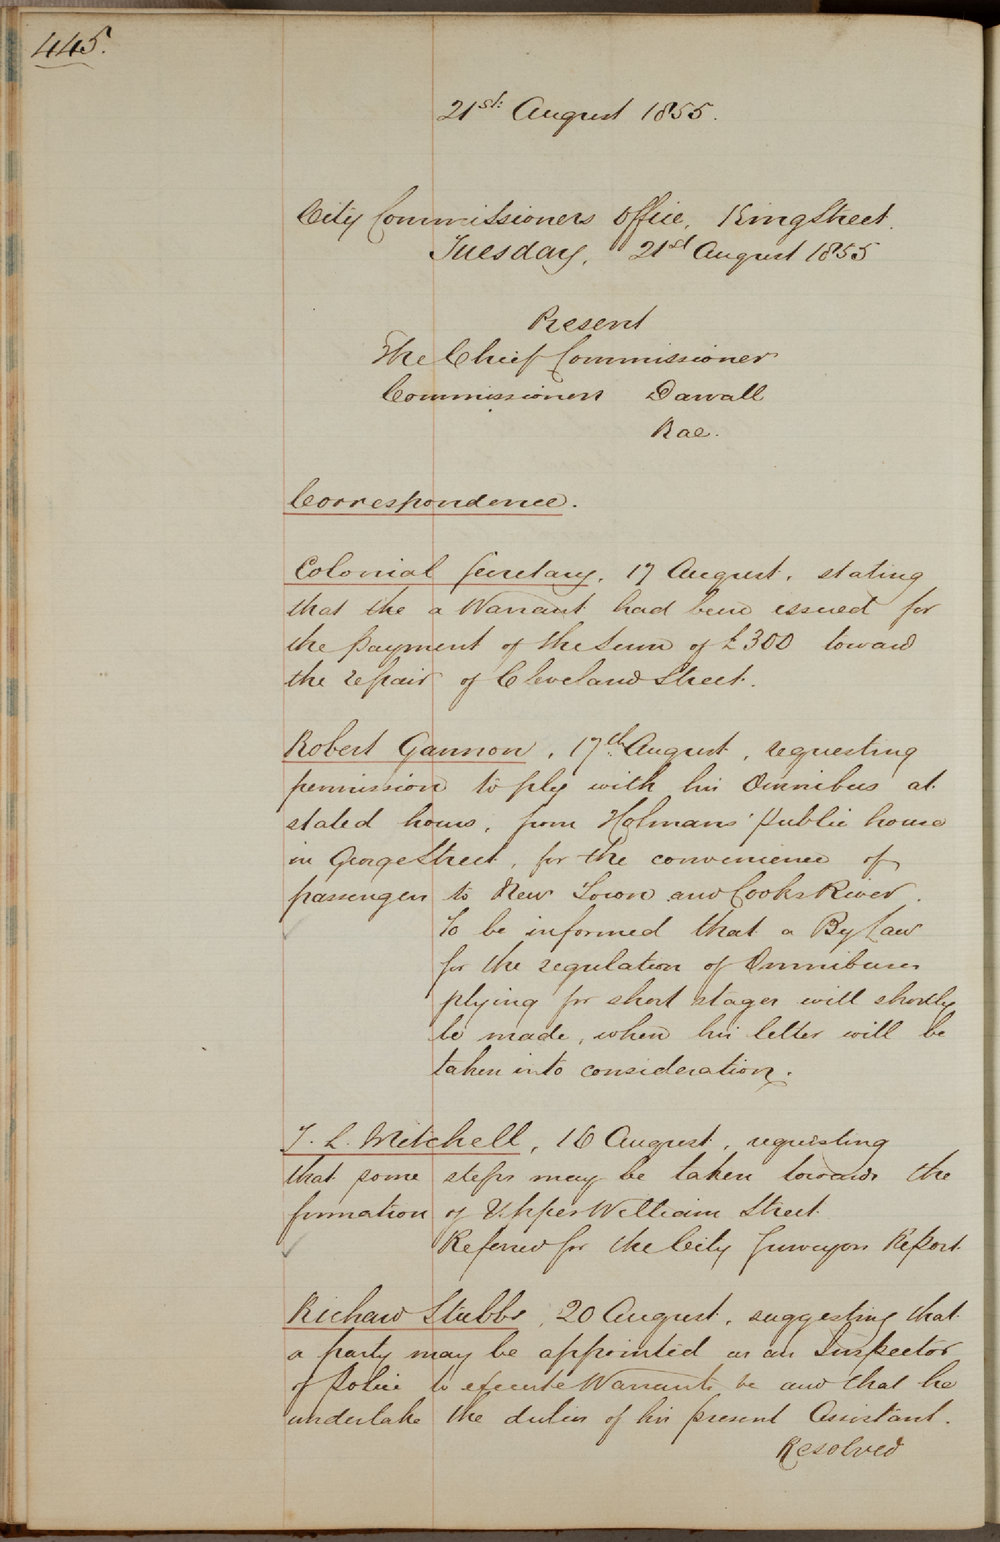 445.
21st August 1855.
City Commissioners Office, King Street.
Tuesday, 21st August 1855
Present
The Chief Commissioner
Commissioners Darvall
Rae.
Correspondence.
Colonial Secretary, 17 August, stating
that the a Warrant had been issued for
the payment of the sum of £300 toward
the repair of Cleveland Street.
Robert Gannon, 17th August, requesting
permission to ply with his Omnibus at
stated hours, from Holmans' public house
in George Street, for the convenience of
passengers to New Town and Cooks River.
To be informed that a By Law
for the regulation of Omnibuses
plying for short stages will shortly
be made, when his letter will be
taken into consideration.
T. L. Mitchell, 16 August, requesting
that some steps may be taken towards the
formation of Upper William Street
Referred for the City Surveyors Report
Richard Stubbs, 20 August, suggesting that
a party may be appointed as an Inspector
of Police to execute Warrants &c and that he
undertake the duties of his present Assistant.
Resolved